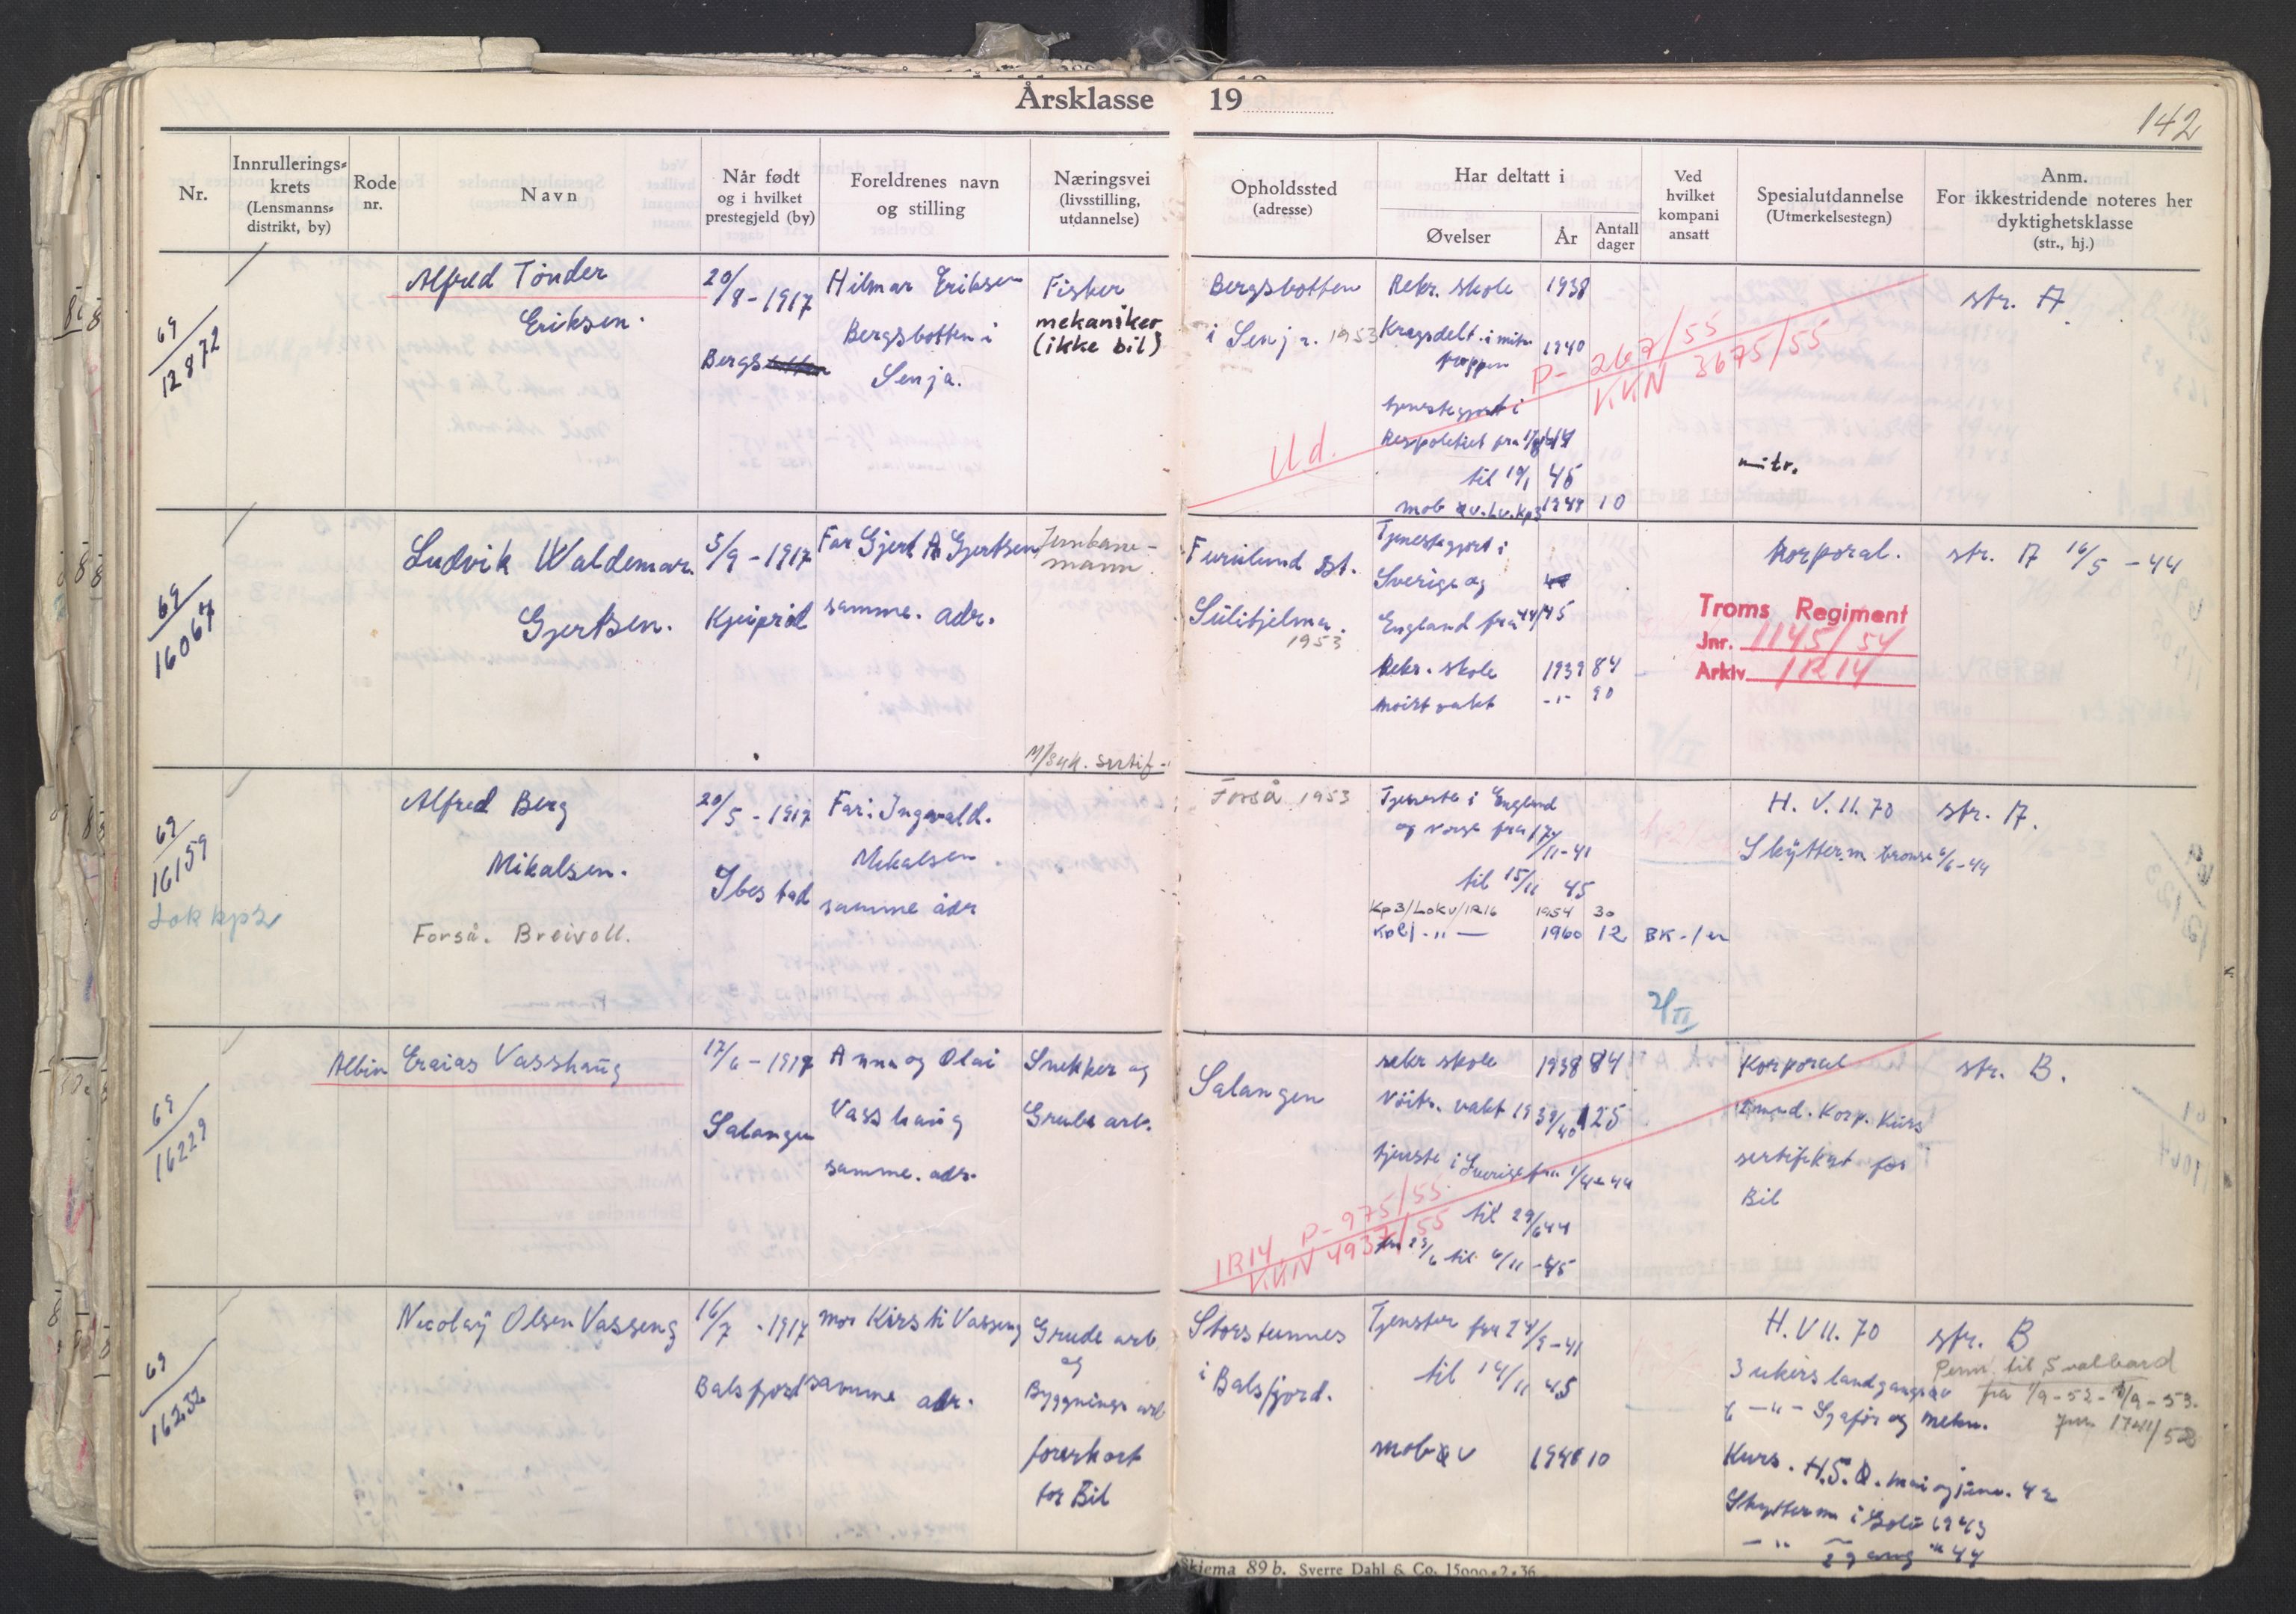 Årsklasse 19
142
Nr.
Innrullerings-
krets
(Lensmanns-
distrikt, by)
Rode
nr.
Navn
Når født
og i hvilket
prestegjeld (by)
Foreldrenes navn
og stilling
Næringsvei
(livsstilling,
utdannelse)
Opholdssted
(adresse)
Har deltatt i
Øvelser
År
Antall
dager
Ved
hvilket
kompani
ansatt
Spesialutdannelse
(Utmerkelsestegn)
Anm.
For ikkestridende noteres her
dyktighetsklasse
(str., hj.)
69/12872
Alfred Tönder
Eriksen.
20/8 - 1917
Bergs
Hilmar Eriksen
Bergsbotten i
Senja.
Fisker
mekaniker
(ikke bil)
Bergsbotten
i Senja. 1953
Rekr. skole 1938
Kragsdelt. i mitr. 1940
troppen
tjenestegjort i
Respolitiet fra
til 19/1 45
mob Lv. kp3 1949 10
Ud.
P- 267/55
KKN 3675/55
mitr.
str. A
69/16067
Ludvik Waldemar
Gjertsen.
5/9 - 1917
Far Gjert A Gjertsen
samme. adr.
Jernbane-
mann.
M/syk. sertif.
Furulund st.
Sulitjelma.
1953
Tjenestegjort i
Sverige og
England fra 44/45
Rekr. skole 1939 84
nøitr vakt -"- 90
Korporal.
Troms Regiment
Jnr. 1145/54
Arkiv IR 14
str. A 16/5 - 44
69/16159
Lok kp 2
Alfred Berg
Mikalsen.
Forså. Breivoll.
20/5 - 1917
Ibestad
Far: Ingvald.
Mikalsen
samme adr
Forså 1953
Tjeneste i England
og Norge fra 17/11-41
til 15/11 45
Kp3/Lokv/IR16 1954 30
Kp2/-"- 1960 12 BK-1er
2/II
H. V. 11. 70
Skytterm. bronse 6/6-44
str. A.
69/16229
Albin Eraias Vasshaug
17/6 - 1917
Salangen
Anna og Olai
Vasshaug
samme. adr.
Snekker og
Grube arb.
Salangen
rekr skole 1938 84
Nöitr. vakt 1939/40 125
tjeneste i Sverige fra
til 29/6 44
fra 29/6 til 6/11 -45
IR14 P- 975/55
KKN 4937/55
Korporal
2 mnd. Korp. Kurs
sertifikat for
Bil
str. B.
69/16232
Nicolay Olsen Vasseng
16/7 - 1917
Balsfjord
mor Kirsti Vasseng
samme adr.
Grube arb.
og
Bygnings arb
förerkort
for Bil
Storstennes
i Balsfjord.
Tjenster fra 24/9-41
til 14/11 45
H. V 11. 70
3 ukers landgangsöv
6 -"- Sjaför og mekn.
Kurs. H.S.Ö. mai og juni. 42
Skytterm i Gold 1943
-"- 2 gang -"- 44
str. B
Perm. til Svalbard
fra 1/9-52 - 1/9-53.
jnr. 1741/52
Skjema 89 b. Sverre Dahl & Co. 15000-2-36